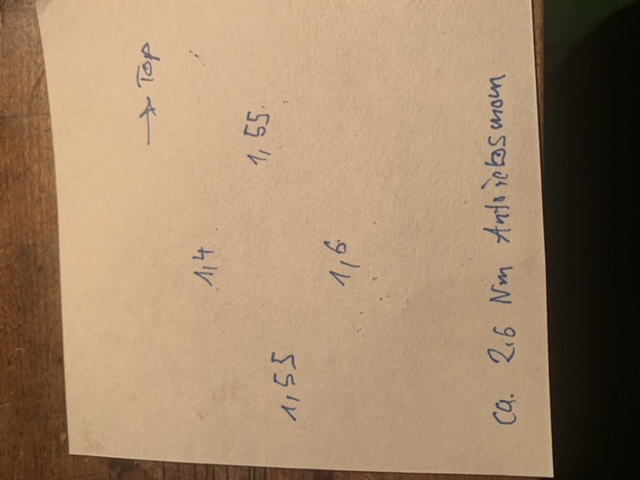 → Top
1,4
1,55 1,55
1,6
ca. 2,6 Nm Antriebsmom